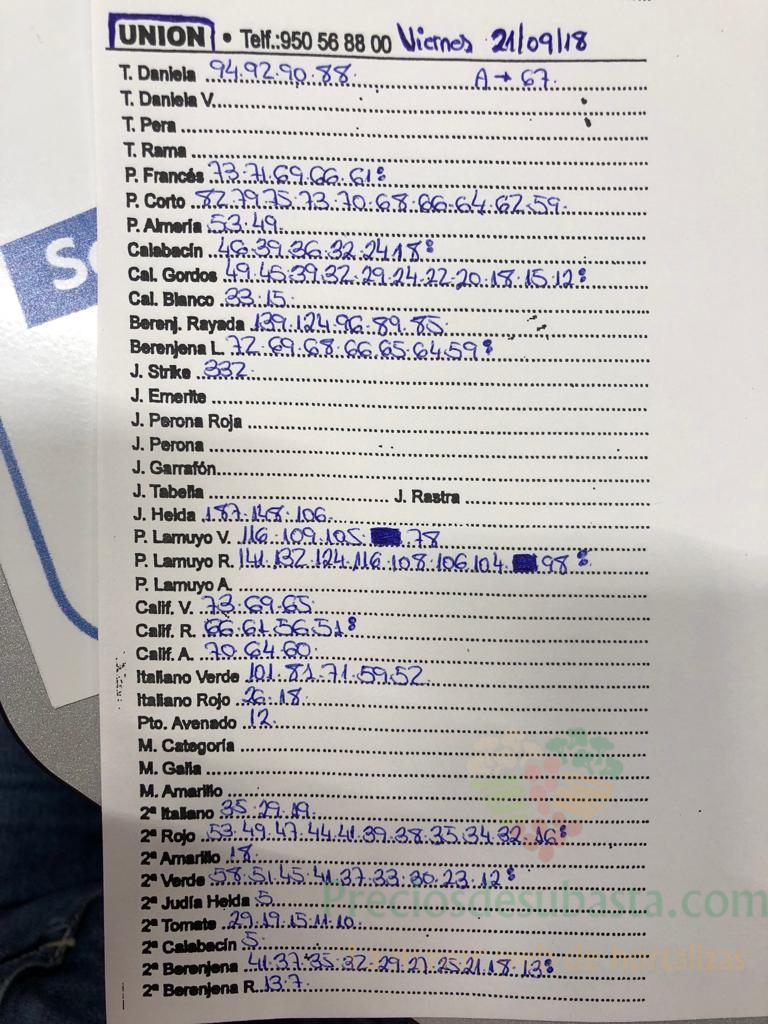 UNION • Telf.:950 56 88 00 Viernes 21/09/18
T. Daniela 94.92.90.88. A→67.
T. Daniela V.
T. Pera
T. Rama
P. Francés 73.71.69.66.61
P. Corto 82.79.75.73.70.68.66.64.62.59.
P. Almería 53.49.
Calabacín 46.39.36.32.24.18
Cal. Gordos 49.45.39.32.29.24.22.20.18.15.12
Cal. Blanco 33.15.
Berenj. Rayada 139.124.96.89.85.
Berenjena L. 72.69.68.66.65.64.59
J. Strike 332.
J. Emerite
J. Perona Roja
J. Perona
J. Garrafón
J. Tabella J. Rastra
J. Helda 187.148.106.
P. Lamuyo V. 116.109.105. 78
P. Lamuyo R. 141.132.124.116.108.106.104. 98
P. Lamuyo A.
Calif. V. 73.69.65
Calif. R. 66.61.56.51
Calif. A. 70.64.60.
Italiano Verde 101.81.71.59.52.
Italiano Rojo 26.18.
Pto. Avenado 12.
M. Categoría
M. Galia
M. Amarillo
2ª Italiano 35.29.19.
2ª Rojo 53.49.47.44.41.39.38.35.34.32.16
2ª Amarillo 18.
2ª Verde 58.51.45.41.37.33.30.23.12
2ª Judía Helda 5.
Preciosdesubasta.com
2ª Tomate 29.19.15.11.10.
2ª Calabacín 5.
2ª Berenjena 41.37.35.32.29.27.25.21.18.13
de hortalizas
2ª Berenjena R. 13.7.